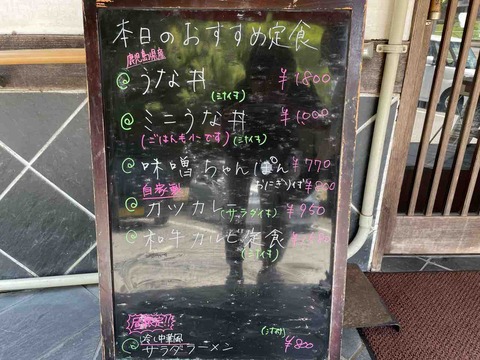 本日のおすすめ定食
鹿児島県産
@うな丼 ¥1,800
(ミナイキ)
@ミニうな丼 ¥1,000
(ごはんもミニです)(ミナイキ)
@味噌ちゃんぽん ¥770
自家製 おにぎり1ケ ¥800
@カツカレー(サラダイキ) ¥950
@和牛カルビ定食
(ミナイキ)
冷し中華風
@サラダラーメン ¥800